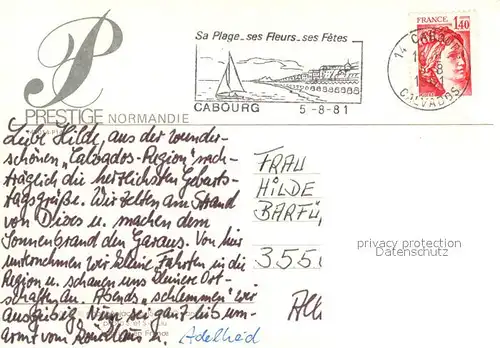 Sa Plage_ses Fleurs_ses Fêtes
CABOURG 5-8-81
14 CABOURG
CALVADOS
FRANCE
1,40
P
PRESTIGE NORMANDIE
Liebe Hilde, aus der wunder-
schönen "Calvados-Region" nach-
träglich die herzlichsten Geburts-
tagsgrüße. Wir zelten am Strand
von Dives u. machen dem
Sonnenbrand den Garaus. Von hier
unternehmen wir kleine Fahrten in die
Region u. schauen uns kleinere Ort-
schaften an. Abends "schlemmen" wir
ausgiebig. Nun sei ganz lieb um-
armt vom u.
Adelheid
FRAU
HILDE
BARFÜ
3550
privacy protection
Datenschutz